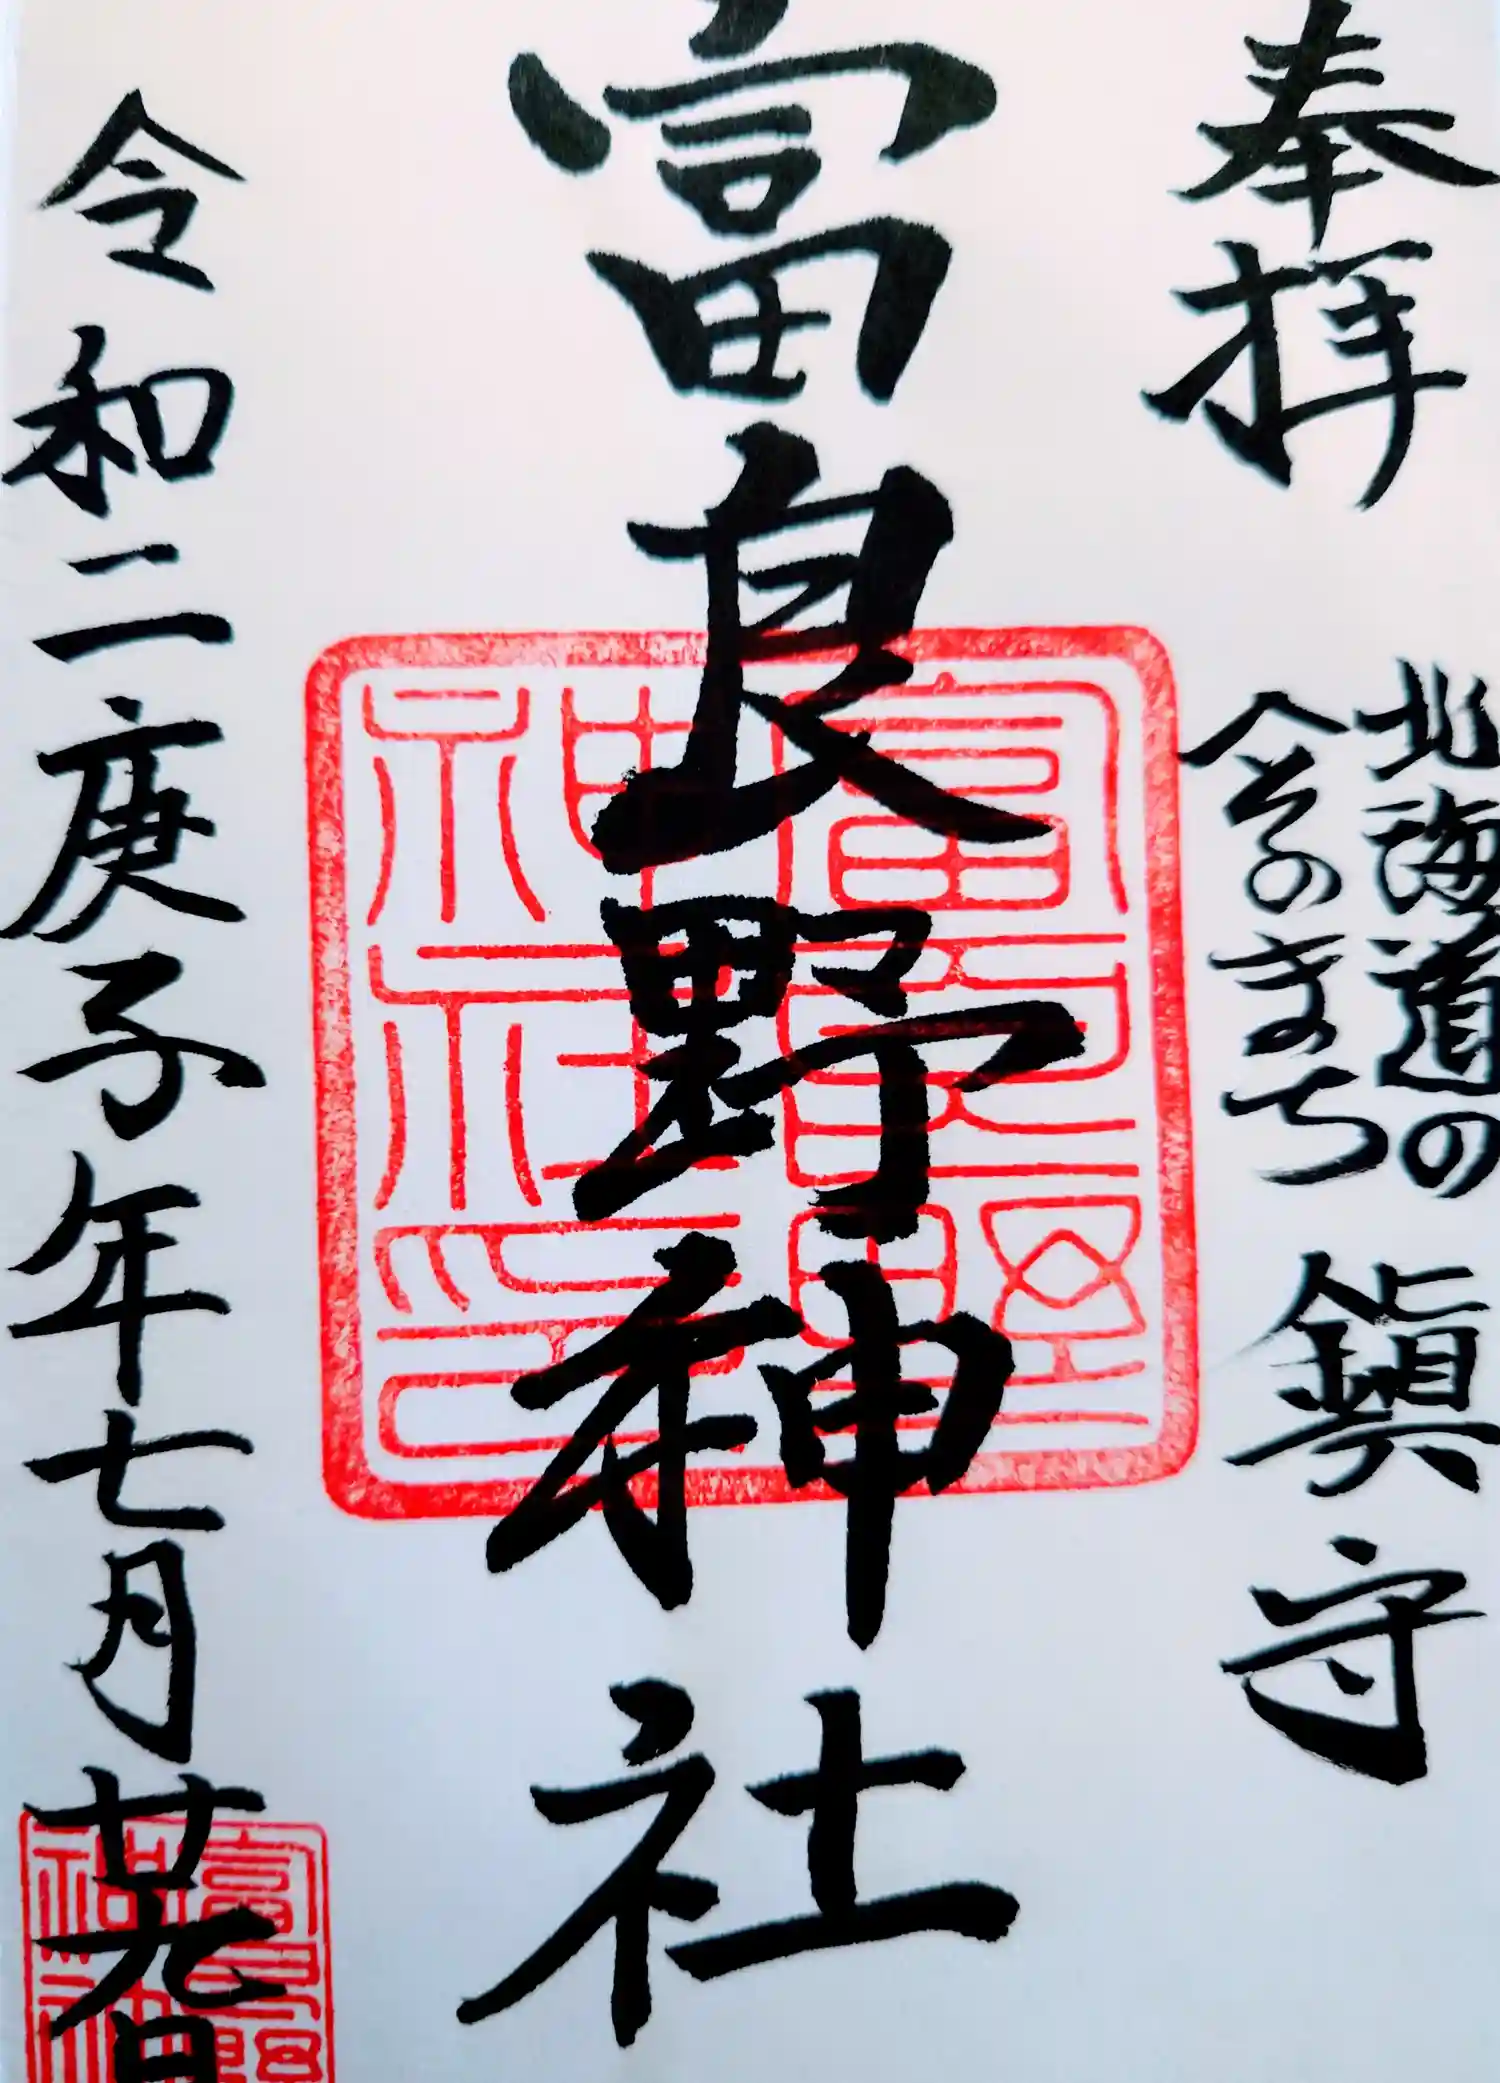 奉拝
北海道の
へそのまち
鎮守
富良野神社
富良野神社印
令和二庚子年七月廿九日
富良野神社